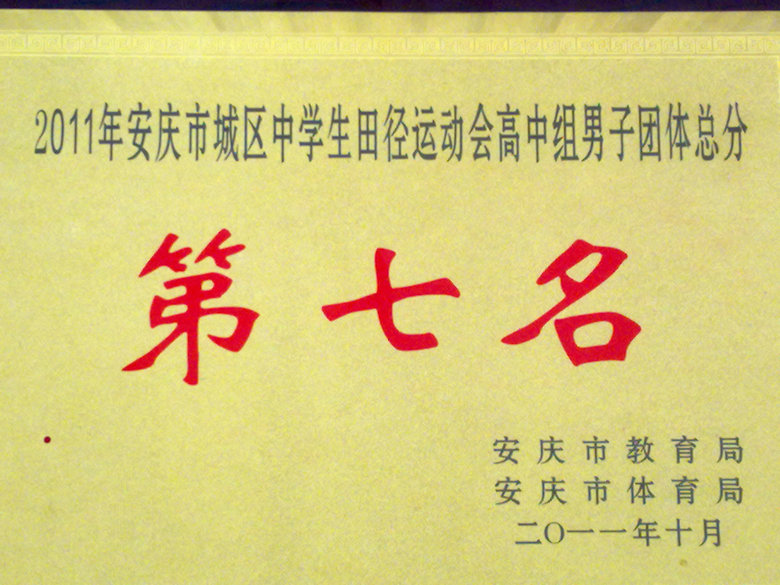 2011年安庆市城区中学生田径运动会高中组男子团体总分
第七名
安庆市教育局
安庆市体育局
二〇一一年十月